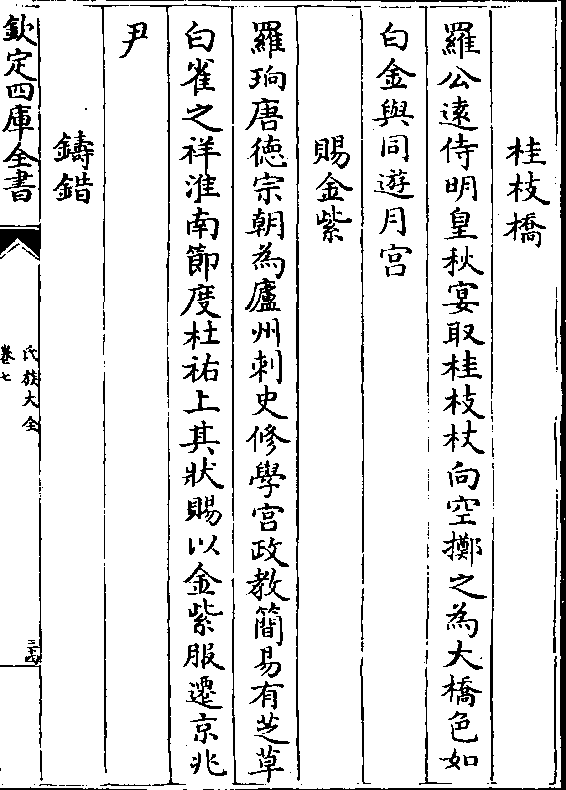 桂枝橋
羅公遠侍明皇秋宴取桂枝杖向空擲之為大橋色如
白金與同遊月宫
賜金紫
羅珦唐德宗朝為廬州刺史修學宫政教簡易有芝草
白雀之祥淮南節度杜祐上其狀賜以金紫服遷京兆
尹
鑄錯
欽定四庫全書
氏族大全
卷七
三十四